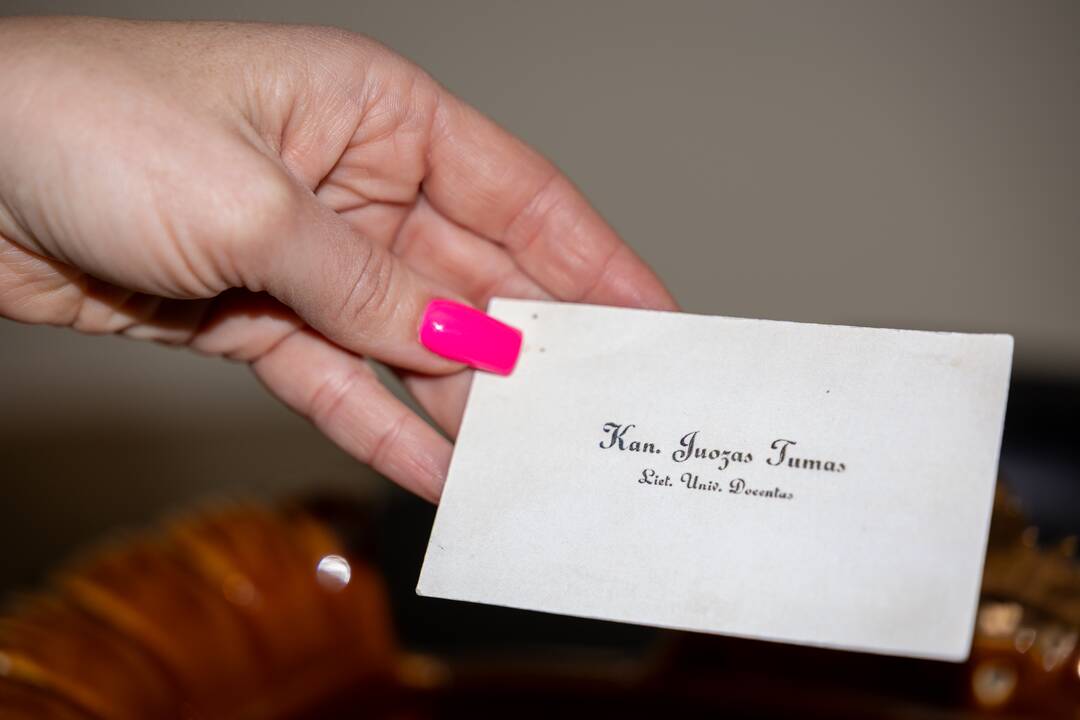 Kan. Juozas Tumas
Liet. Univ. Docentas